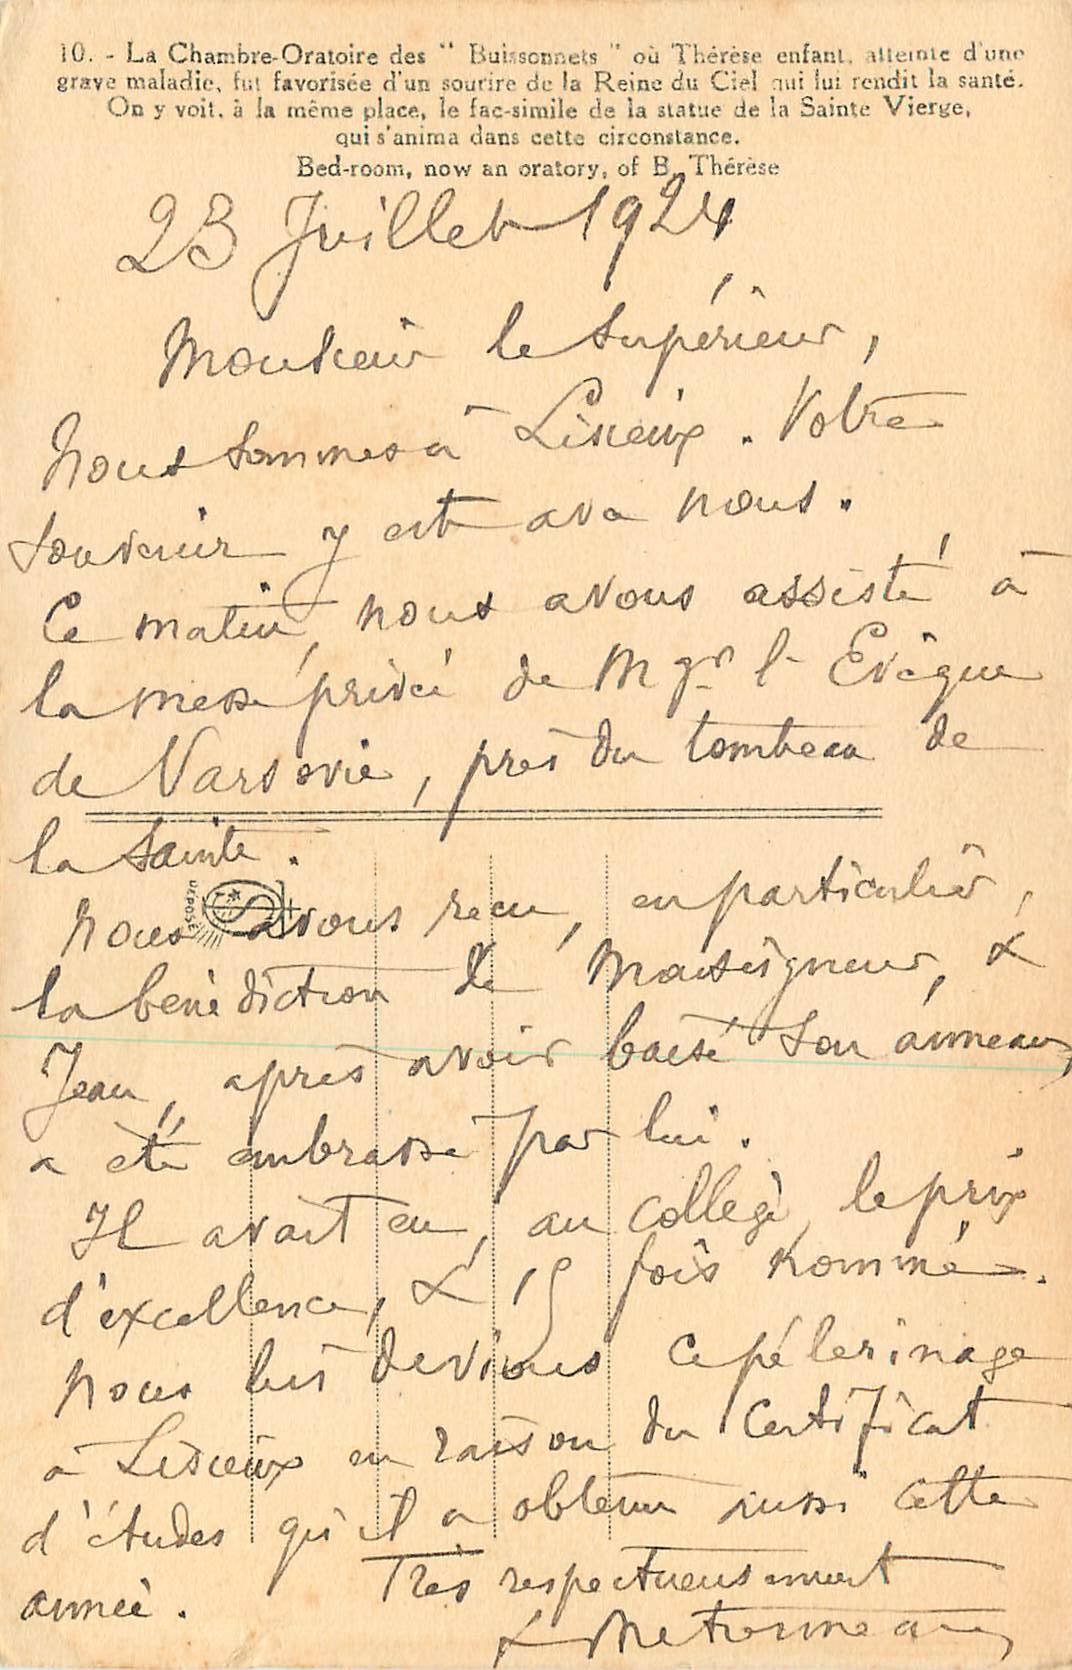 10. - La Chambre-Oratoire des " Buissonnets " où Thérèse enfant, atteinte d'une
grave maladie, fut favorisée d'un sourire de la Reine du Ciel qui lui rendit la santé.
On y voit, à la même place, le fac-simile de la statue de la Sainte Vierge,
qui s'anima dans cette circonstance.
Bed-room, now an oratory, of B. Thérèse
23 Juillet 1924
Monsieur le Supérieur,
Nous sommes à Lisieux. Votre
souvenir y est avec nous.
Ce matin, nous avons assisté à
la messe privée de Mgr l'Evêque
de Varsovie, près du tombeau de
la Sainte.
DEPOSÉ
Nous avons reçu, en particulier,
la bénédiction de Monseigneur, &
Jean, après avoir baisé son anneau,
a été embrassé par lui.
Il avait eu, au collège, le prix
d'excellence, & 15 fois nommé.
Nous lui devions ce pélerinage
à Lisieux en raison du Certificat
d'études qu'il a obtenu aussi cette
année.
Très respectueusement